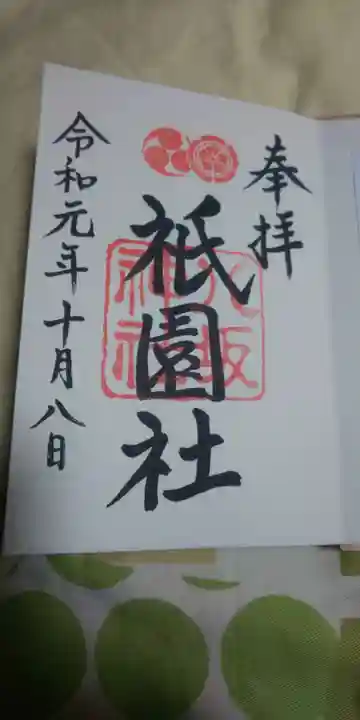 奉拝
八坂神社
祇園社
令和元年十月八日